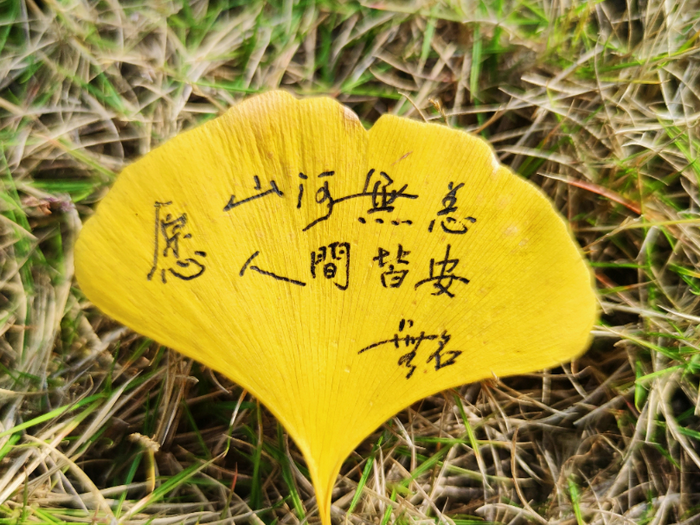 愿
山河無恙
人間皆安
名